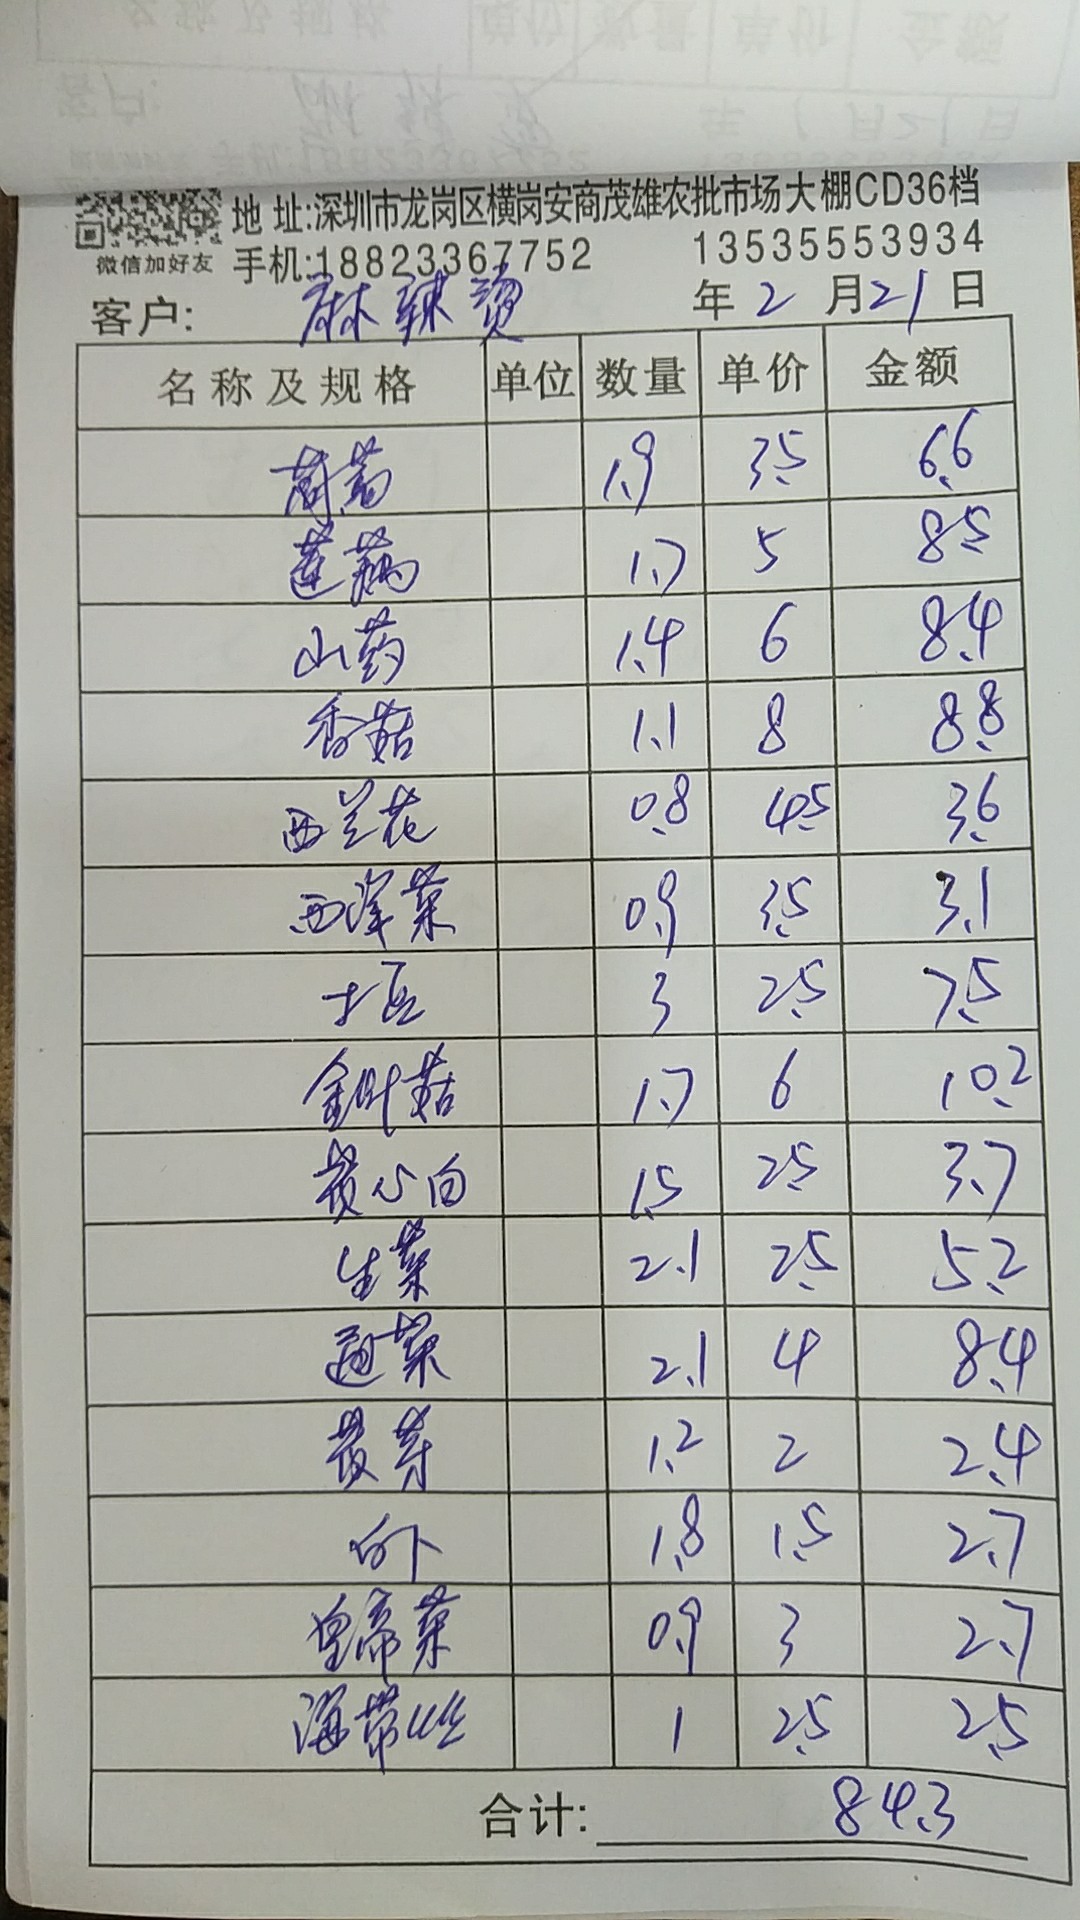 地 址:深圳市龙岗区横岗安商茂雄农批市场大棚CD36档
微信加好友 手机:18823367752 13535553934
客户: 麻辣烫 年 2 月 21 日
名称及规格 单位 数量 单价 金额
茼蒿 1.9 3.5 6.6
莲藕 1.7 5 8.5
山药 1.4 6 8.4
香菇 1.1 8 8.8
西兰花 0.8 4.5 3.6
西洋菜 0.9 3.5 3.1
土豆 3 2.5 7.5
金针菇 1.7 6 10.2
黄心白 1.5 2.5 3.7
生菜 2.1 2.5 5.2
菜 2.1 4 8.4
芽 1.2 2 2.4
白卜 1.8 1.5 2.7
皇帝菜 0.9 3 2.7
海带丝 1 2.5 2.5
合计: 84.3